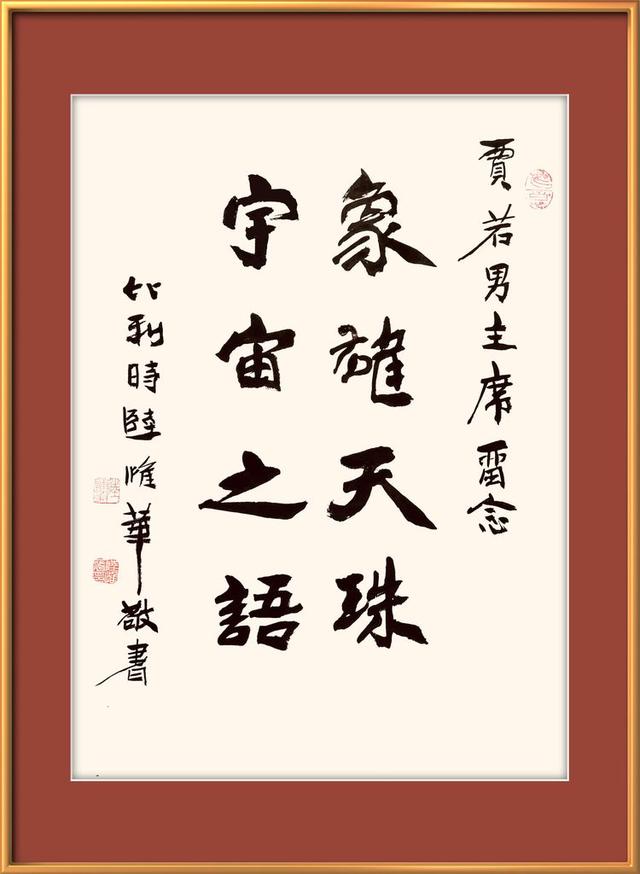 賈若男主席留念
象雄天珠
宇宙之語
比利時陸惟華敬書